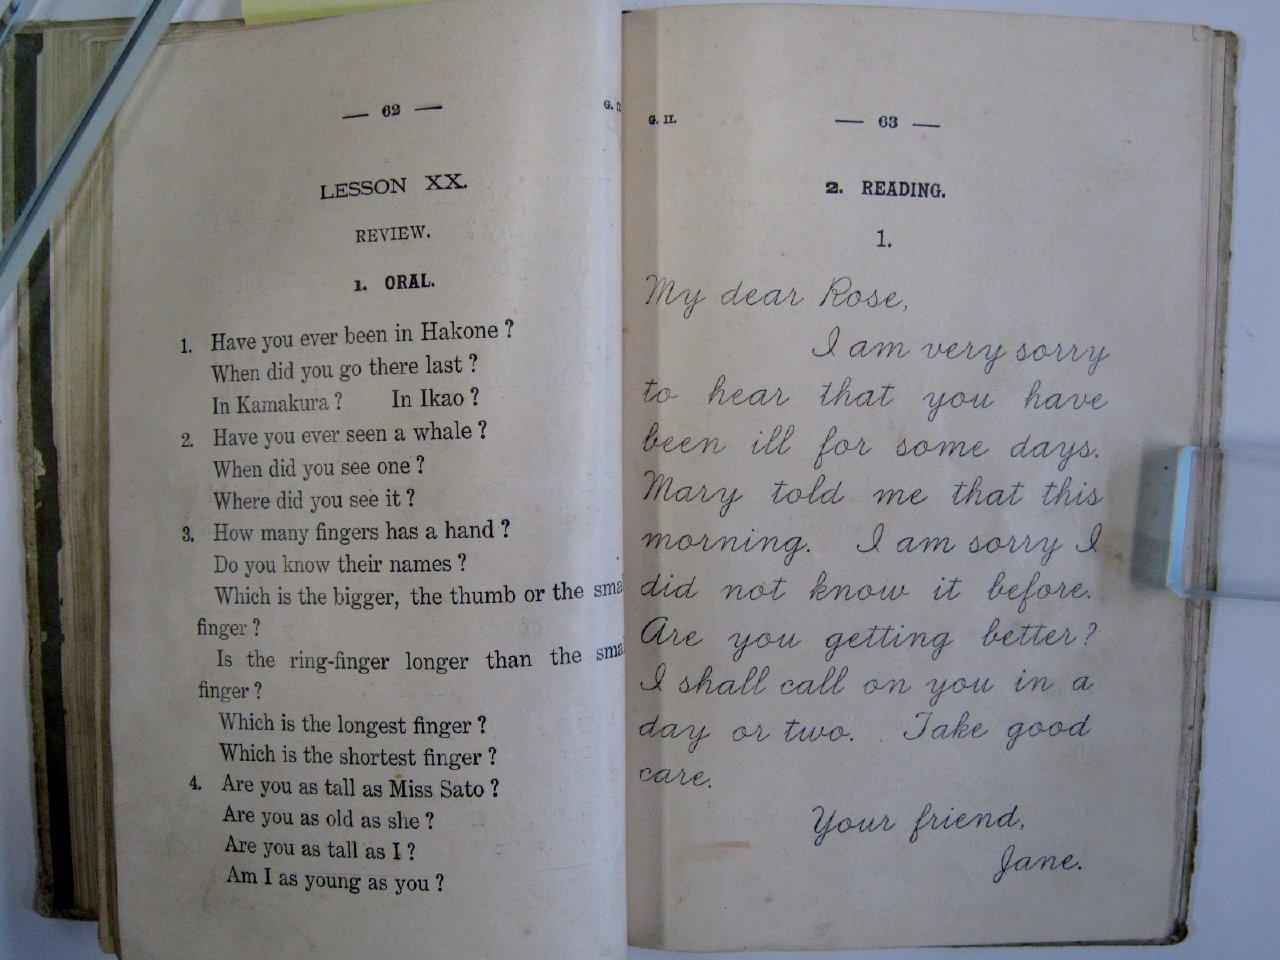 — 62 —
LESSON XX.
REVIEW.
1. ORAL.
1. Have you ever been in Hakone ?
When did you go there last ?
In Kamakura ? In Ikao ?
2. Have you ever seen a whale ?
When did you see one ?
Where did you see it ?
3. How many fingers has a hand ?
Do you know their names ?
Which is the bigger, the thumb or the
finger ?
Is the ring-finger longer than the
finger ?
Which is the longest finger ?
Which is the shortest finger ?
4. Are you as tall as Miss Sato ?
Are you as old as she ?
Are you as tall as I ?
Am I as young as you ?
G. II.
— 63 —
2. READING.
1.
My dear Rose,
I am very sorry
to hear that you have
been ill for some days.
Mary told me that this
morning. I am sorry I
did not know it before.
Are you getting better?
I shall call on you in a
day or two. Take good
care.
Your friend,
Jane.